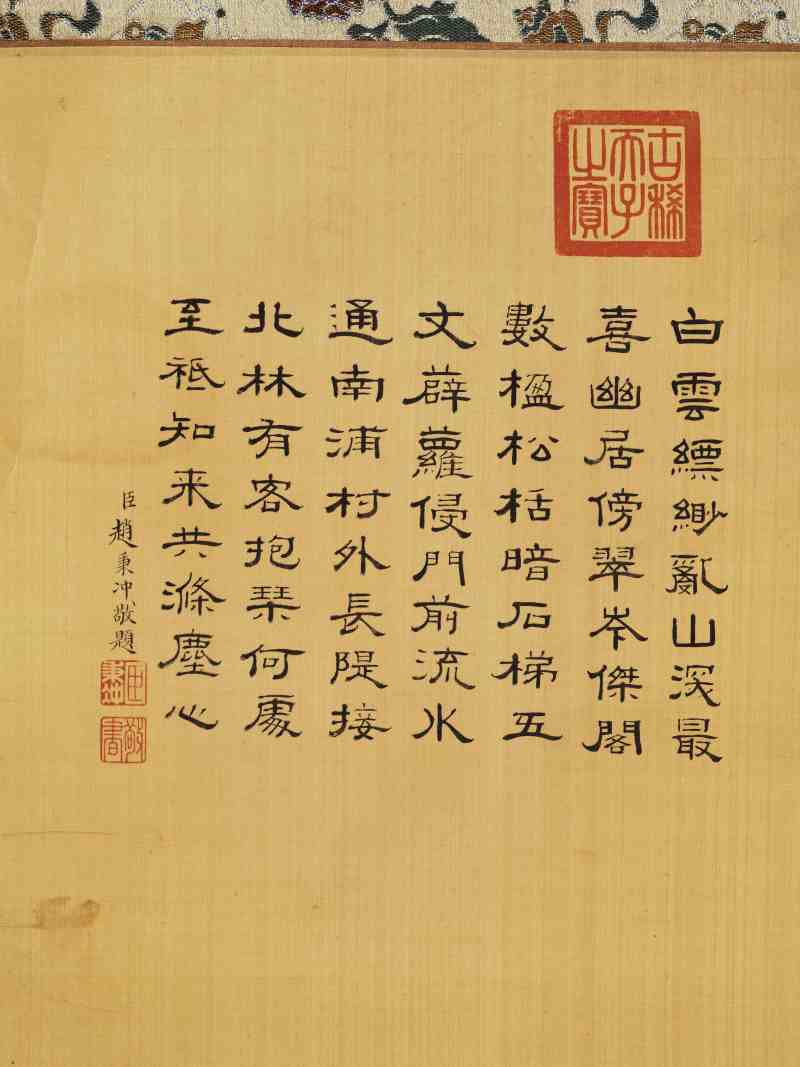 古稀天子之寶
白雲縹緲亂山深最
喜幽居傍翠岑傑閣
數楹松栝暗石梯五
丈薜蘿侵門前流水
通南浦村外長隄接
北林有客抱琹何處
至祗知来共滌塵心
臣趙秉冲敬題
敬書